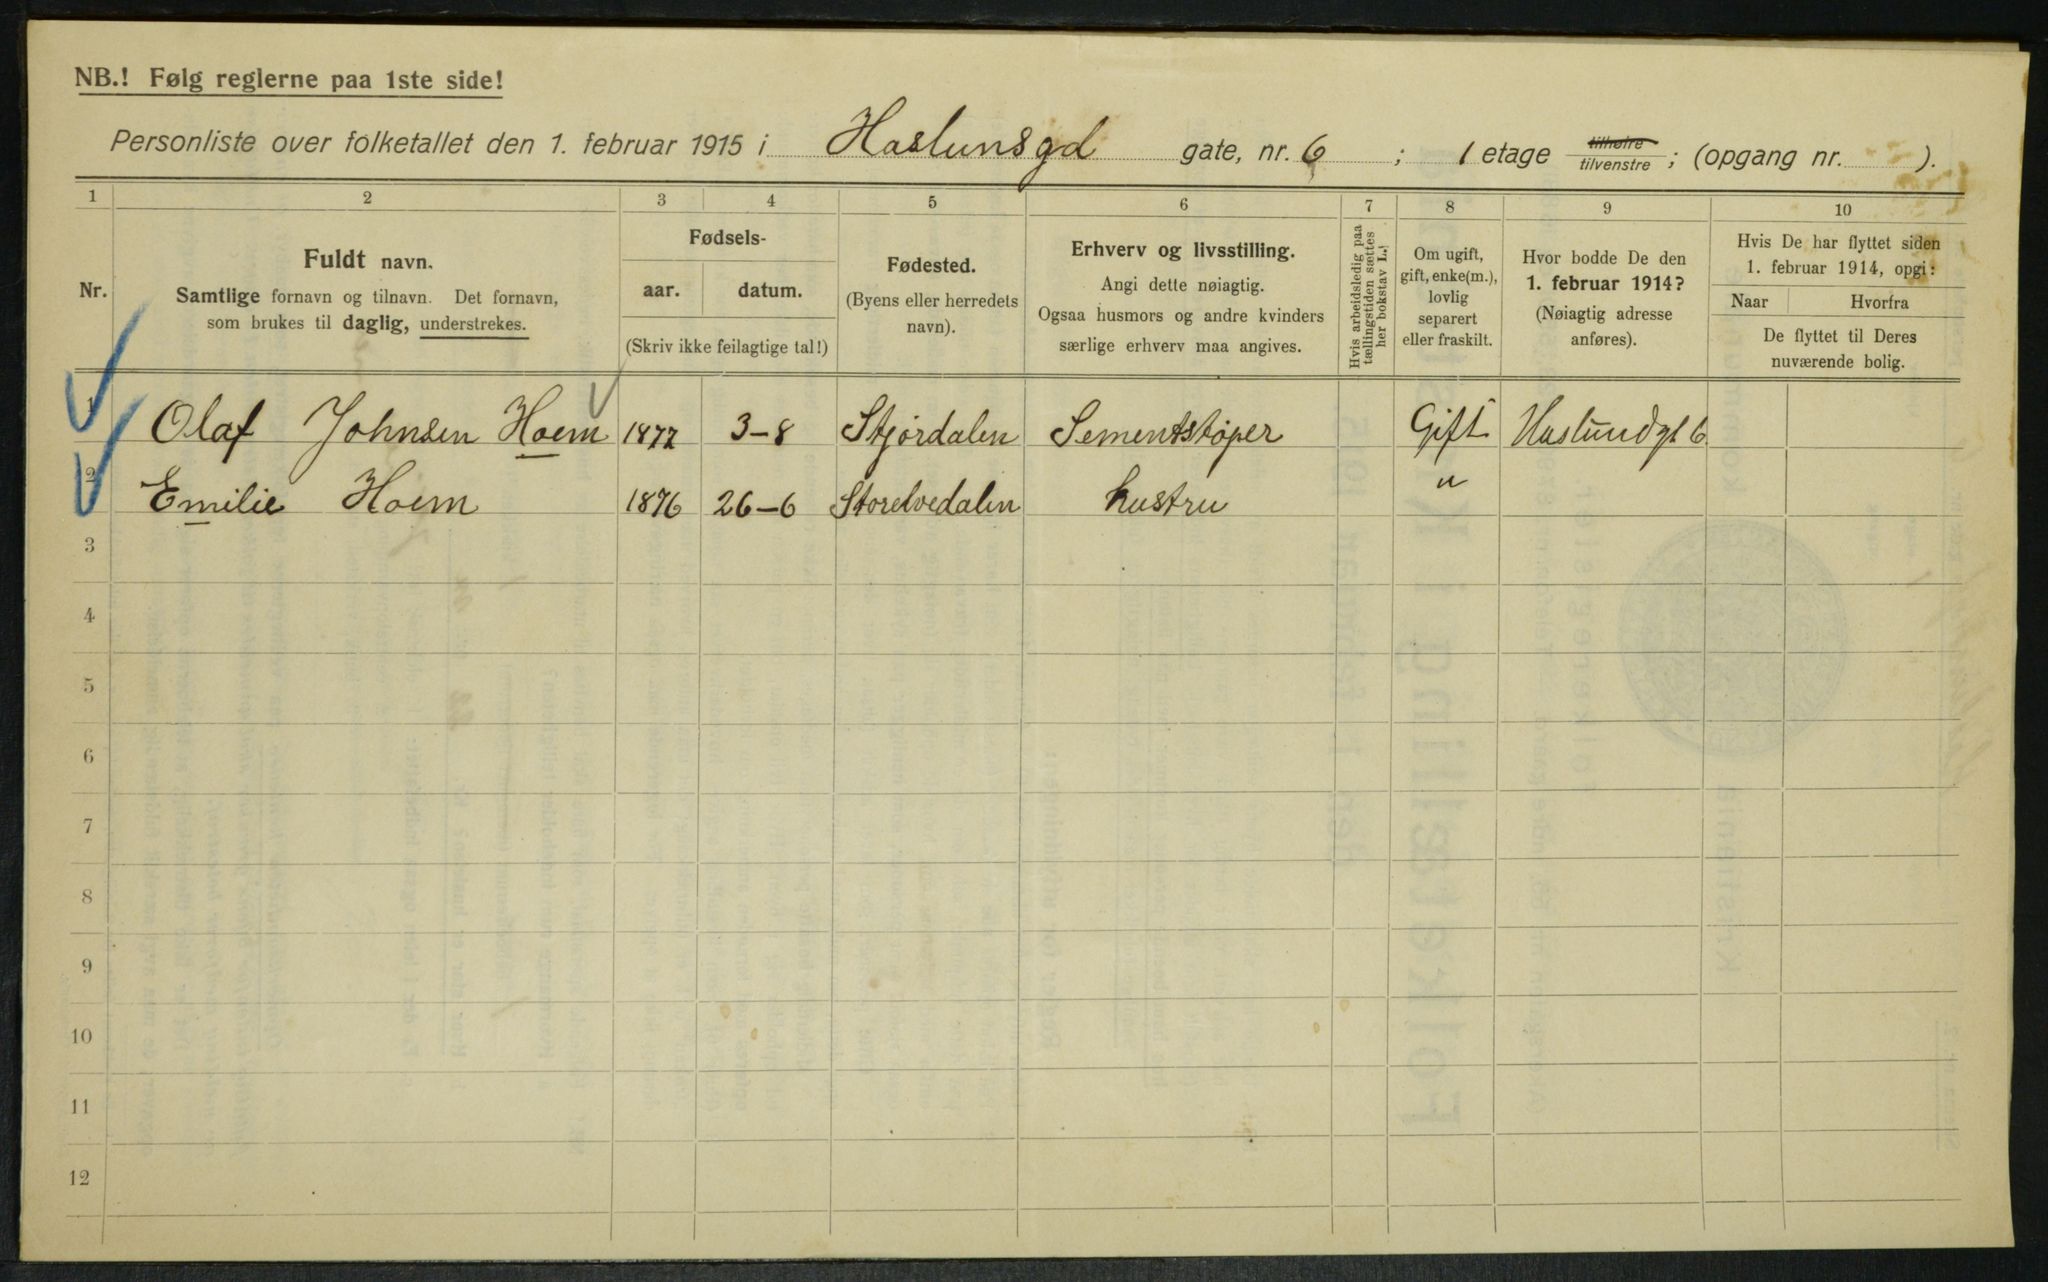 NB.! Følg reglerne paa 1ste side!
Personliste over folketallet den 1. februar 1915 i Haslunsgd gate, nr. 6 ; 1 etage tilhøire tilvenstre ; (opgang nr. ).
1 2 3 4 5 6 7 8 9 10
Nr.
Fuldt navn.
Samtlige fornavn og tilnavn. Det fornavn,
som brukes til daglig, understrekes.
Fødsels-
aar. datum.
(Skriv ikke feilagtige tal!)
Fødested.
(Byens eller herredets
navn).
Erhverv og livsstilling.
Angi dette nøiagtig.
Ogsaa husmors og andre kvinders
særlige erhverv maa angives.
Hvis arbeidsledig paa
tællingstiden sættes
her bokstav L.!
Om ugift,
gift, enke(m.),
lovlig
separert
eller fraskilt.
Hvor bodde De den
1. februar 1914?
(Nøiagtig adresse
anføres).
Hvis De har flyttet siden
1. februar 1914, opgi:
Naar Hvorfra
De flyttet til Deres
nuværende bolig.
1 Olaf Johnsen Hoem 1877 3-8 Stjørdalen Sementstøper Gift Haslundgt 6
2 Emilie Hoem 1876 26-6 Storelvedalen hustru "
3
4
5
6
7
8
9
10
11
12